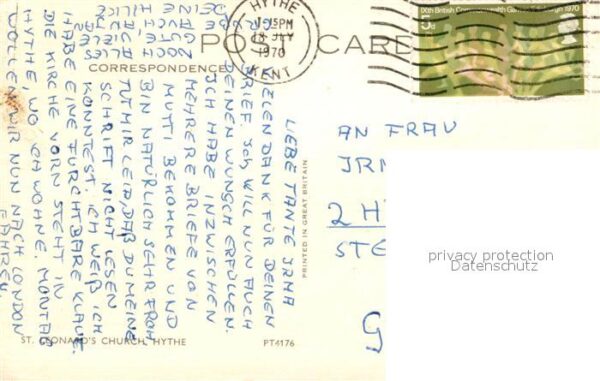 POST CARD
CORRESPONDENCE
HYTHE
7-15PM
1970
KENT
IXth British Commonwealth Games Edinburgh 1970
5d
LIEBE TANTE IRMA
VIELEN DANK FÜR DEINEN
BRIEF. ICH WILL NUN AUCH
DEINEN WUNSCH ERFÜLLEN.
ICH HABE INZWISCHEN
MEHRERE BRIEFE VON
MUTTI BEKOMMEN UND
BIN NATÜRLICH SEHR FROH
TUT MIR LEID, DAß DU MEINE
SCHRIFT NICHT LESEN
KONNTEST. ICH WEIß ICH
HABE EINE FURCHTBARE KLAUE.
DIE KIRCHE VORN STEHT IN
HYTHE, WO ICH WOHNE. MONTAG
WOLLEN WIR NUN NACH LONDON
FAHREN.
ALLES
NOCH
GUTE
PRINTED IN GREAT BRITAIN
AN FRAU
IRM
2 H
STE
G
privacy protection
Datenschutz
ST. LEONARD'S CHURCH, HYTHE
PT4176